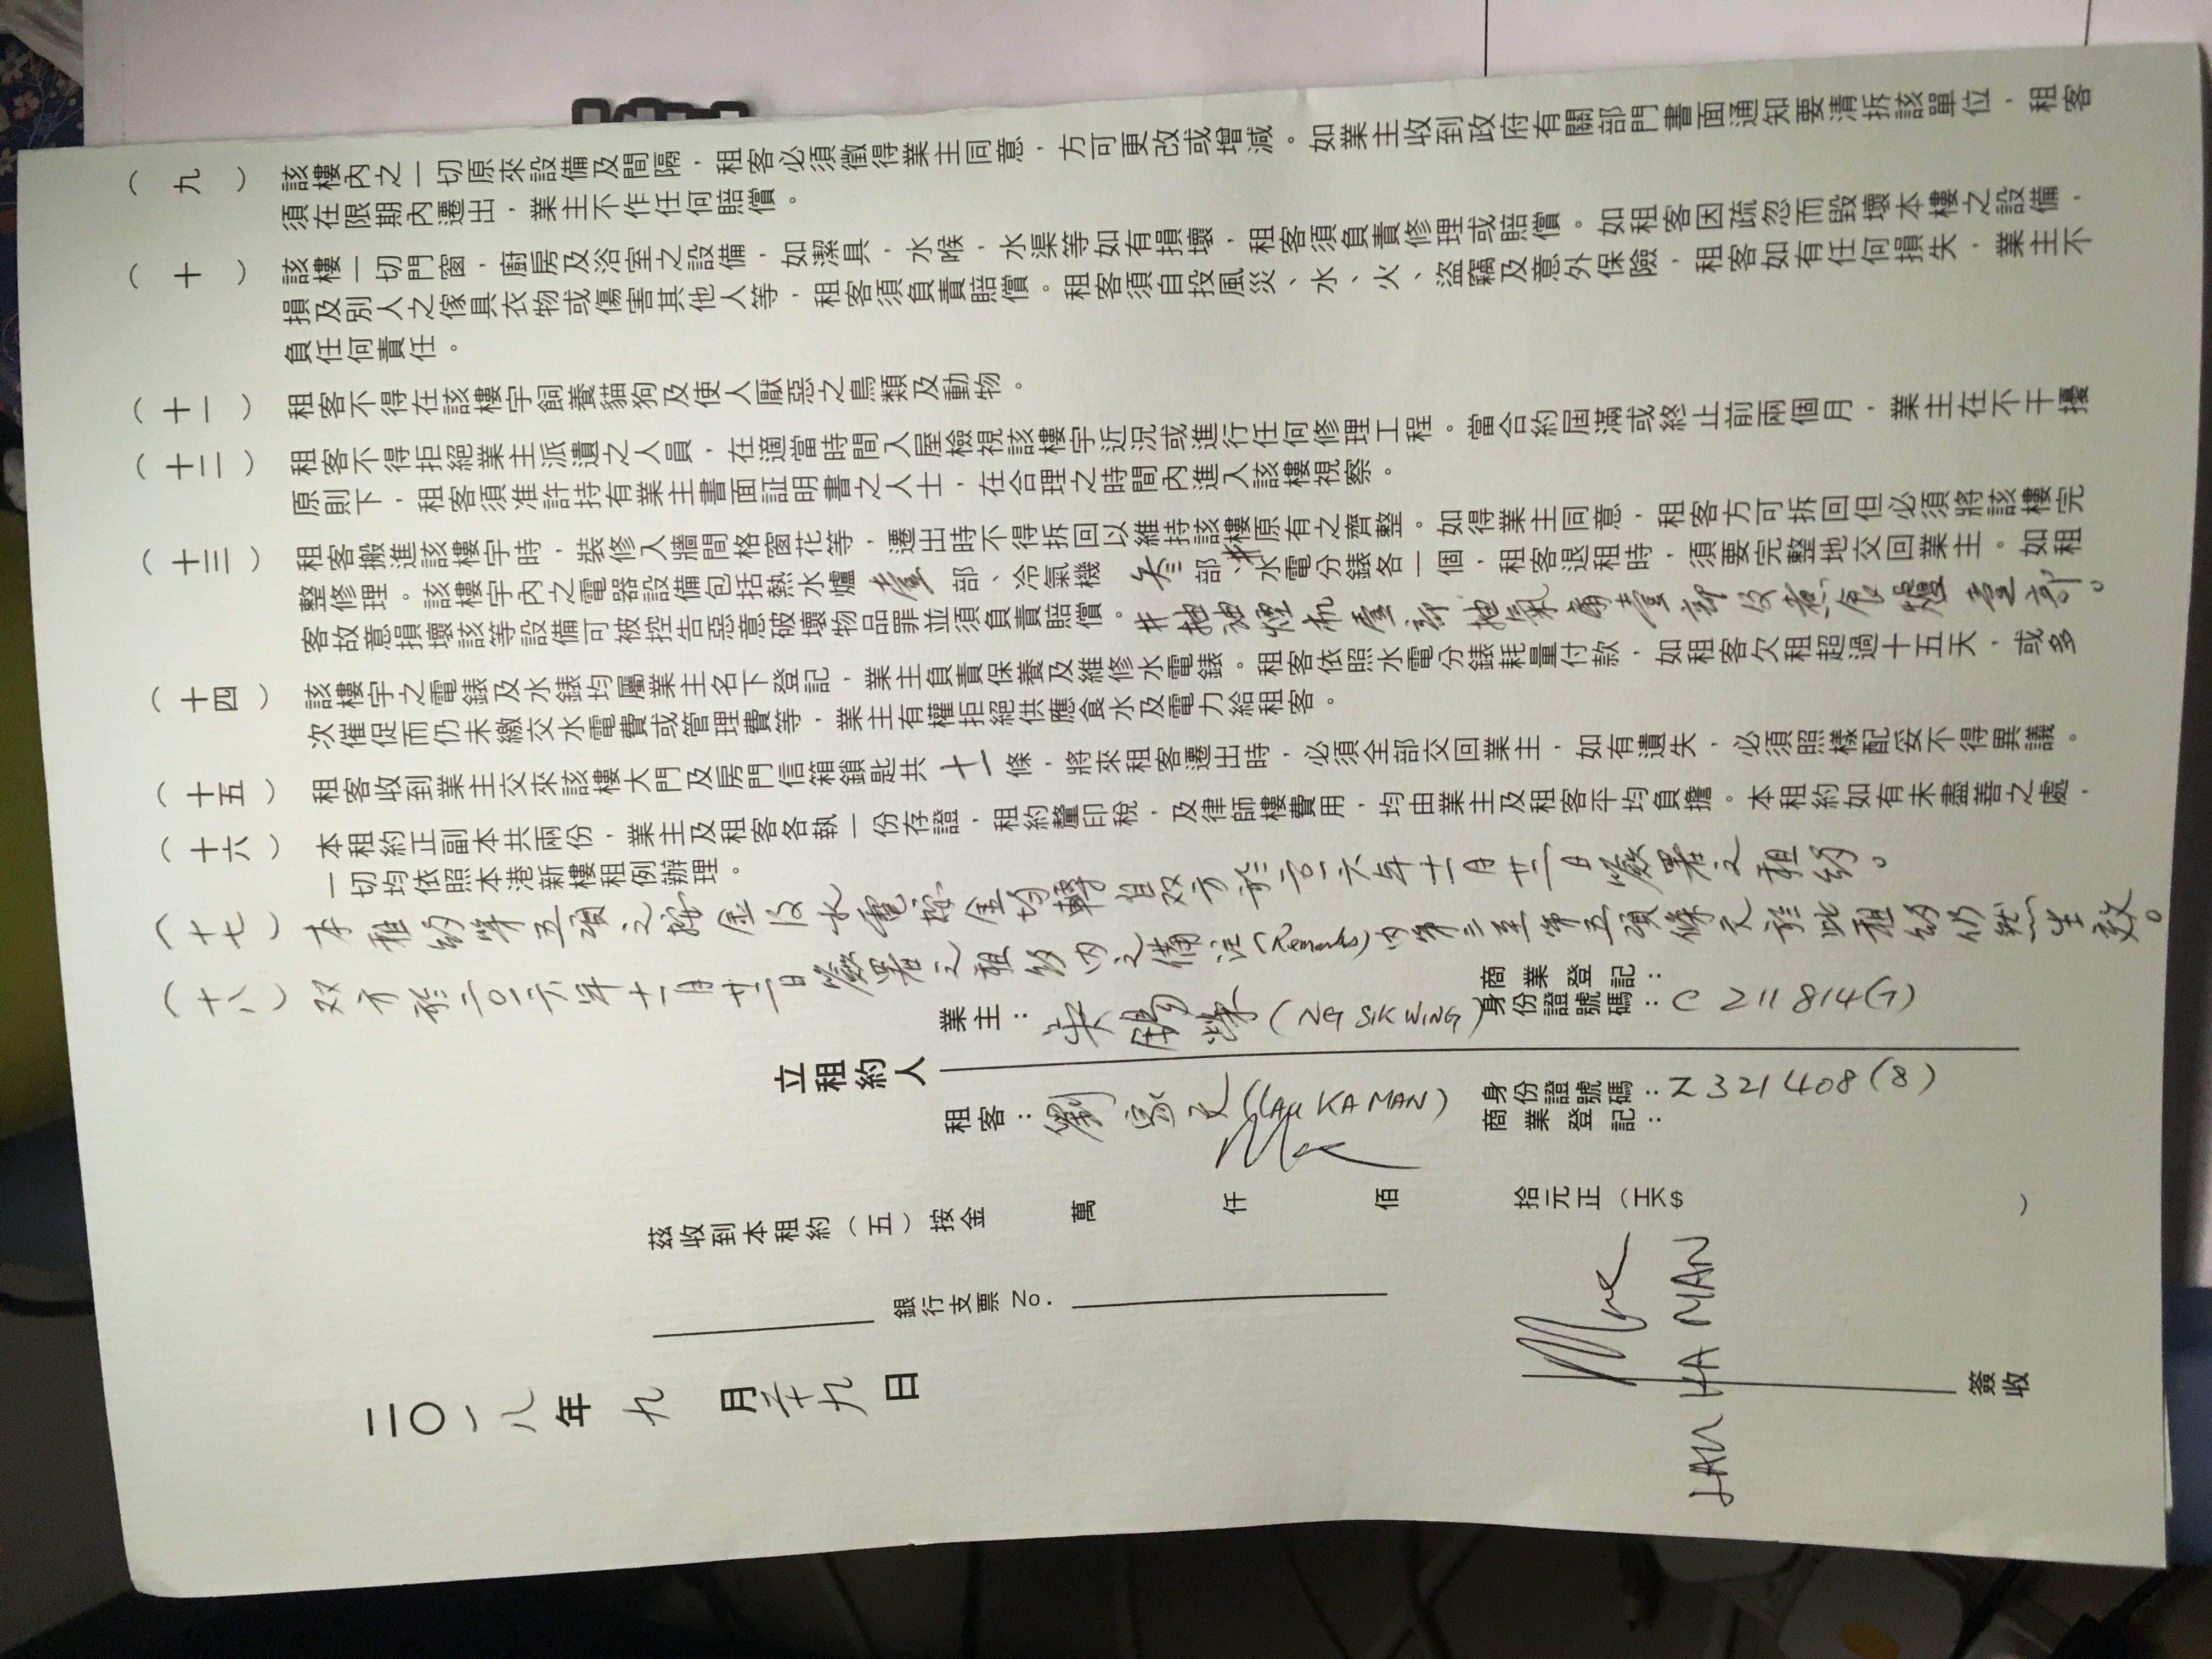 （九）該樓內之一切原來設備及間隔，租客必須徵得業主同意，方可更改或增減。如業主收到政府有關部門書面通知要清拆該單位，租客
須在限期內遷出，業主不作任何賠償。
（十）該樓一切門窗，廚房及浴室之設備，如潔具，水喉，水渠等如有損壞，租客須負責修理或賠償。如租客因疏忽而毀壞本樓之設備，
損及別人之傢具衣物或傷害其他人等，租客須負責賠償。租客須自投風災、水、火、盜竊及意外保險，租客如有任何損失，業主不
負任何責任。
（十一）租客不得在該樓宇飼養貓狗及使人厭惡之鳥類及動物。
（十二）租客不得拒絕業主派遣之人員，在適當時間入屋檢視該樓宇近況或進行任何修理工程。當合約屆滿或終止前兩個月，業主在不干擾
原則下，租客須准許持有業主書面証明書之人士，在合理之時間內進入該樓視察。
（十三）租客搬進該樓宇時，裝修入牆間格窗花等，遷出時不得拆回以維持該樓原有之齊整。如得業主同意，租客方可拆回但必須將該樓完
整修理。該樓宇內之電器設備包括熱水爐壹部、冷氣機叁部、#水電分錶各一個，租客退租時，須要完整地交回業主。如租
客故意損壞該等設備可被控告惡意破壞物品罪並須負責賠償。# 抽油煙机壹部抽氣扇壹部及煮食爐壹部。
（十四）該樓宇之電錶及水錶均屬業主名下登記，業主負責保養及維修水電錶。租客依照水電分錶耗量付款，如租客欠租超過十五天，或多
次催促而仍未繳交水電費或管理費等，業主有權拒絕供應食水及電力給租客。
（十五）租客收到業主交來該樓大門及房門信箱鎖匙共十一條，將來租客遷出時，必須全部交回業主，如有遺失，必須照樣配妥不得異議。
（十六）本租約正副本共兩份，業主及租客各執一份存證，租約釐印稅，及律師樓費用，均由業主及租客平均負擔。本租約如有未盡善之處，
一切均依照本港新樓租例辦理。
（十七）本租約第五項之按金及水電按金均轉自双方於二〇一六年十一月廿二日簽署之租約。
（十八）双方於二〇一六年十一月廿二日簽署之租約內之備註(Remarks)內第二至第五項條文於此租約仍然生效。
立租約人
業主：吳錫榮 (NG SIK WING)
商業登記：
身份證號碼：C 211814(7)
租客：劉家文 (LAU KA MAN)
身份證號碼：Z 321408(8)
商業登記：
茲收到本租約（五）按金 萬 仟 佰 拾元正（HK$ ）
銀行支票 No.
LAU KA MAN
簽收
二〇一八年九月二十九日